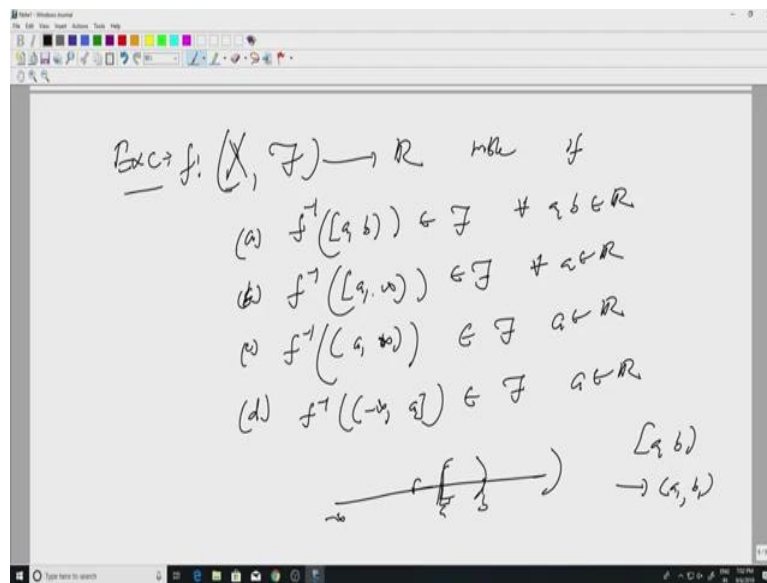 Note1 - Windows Journal
File Edit View Insert Actions Tools Help
Exc: f: (X, F) → R mble if
(a) f⁻¹([a, b)) ∈ F ∀ a, b ∈ R
(b) f⁻¹([a, ∞)) ∈ F ∀ a ∈ R
(c) f⁻¹((a, ∞)) ∈ F a ∈ R
(d) f⁻¹((-∞, a]) ∈ F a ∈ R
[a, b)
-∞ a b → (a, b)
Type here to search